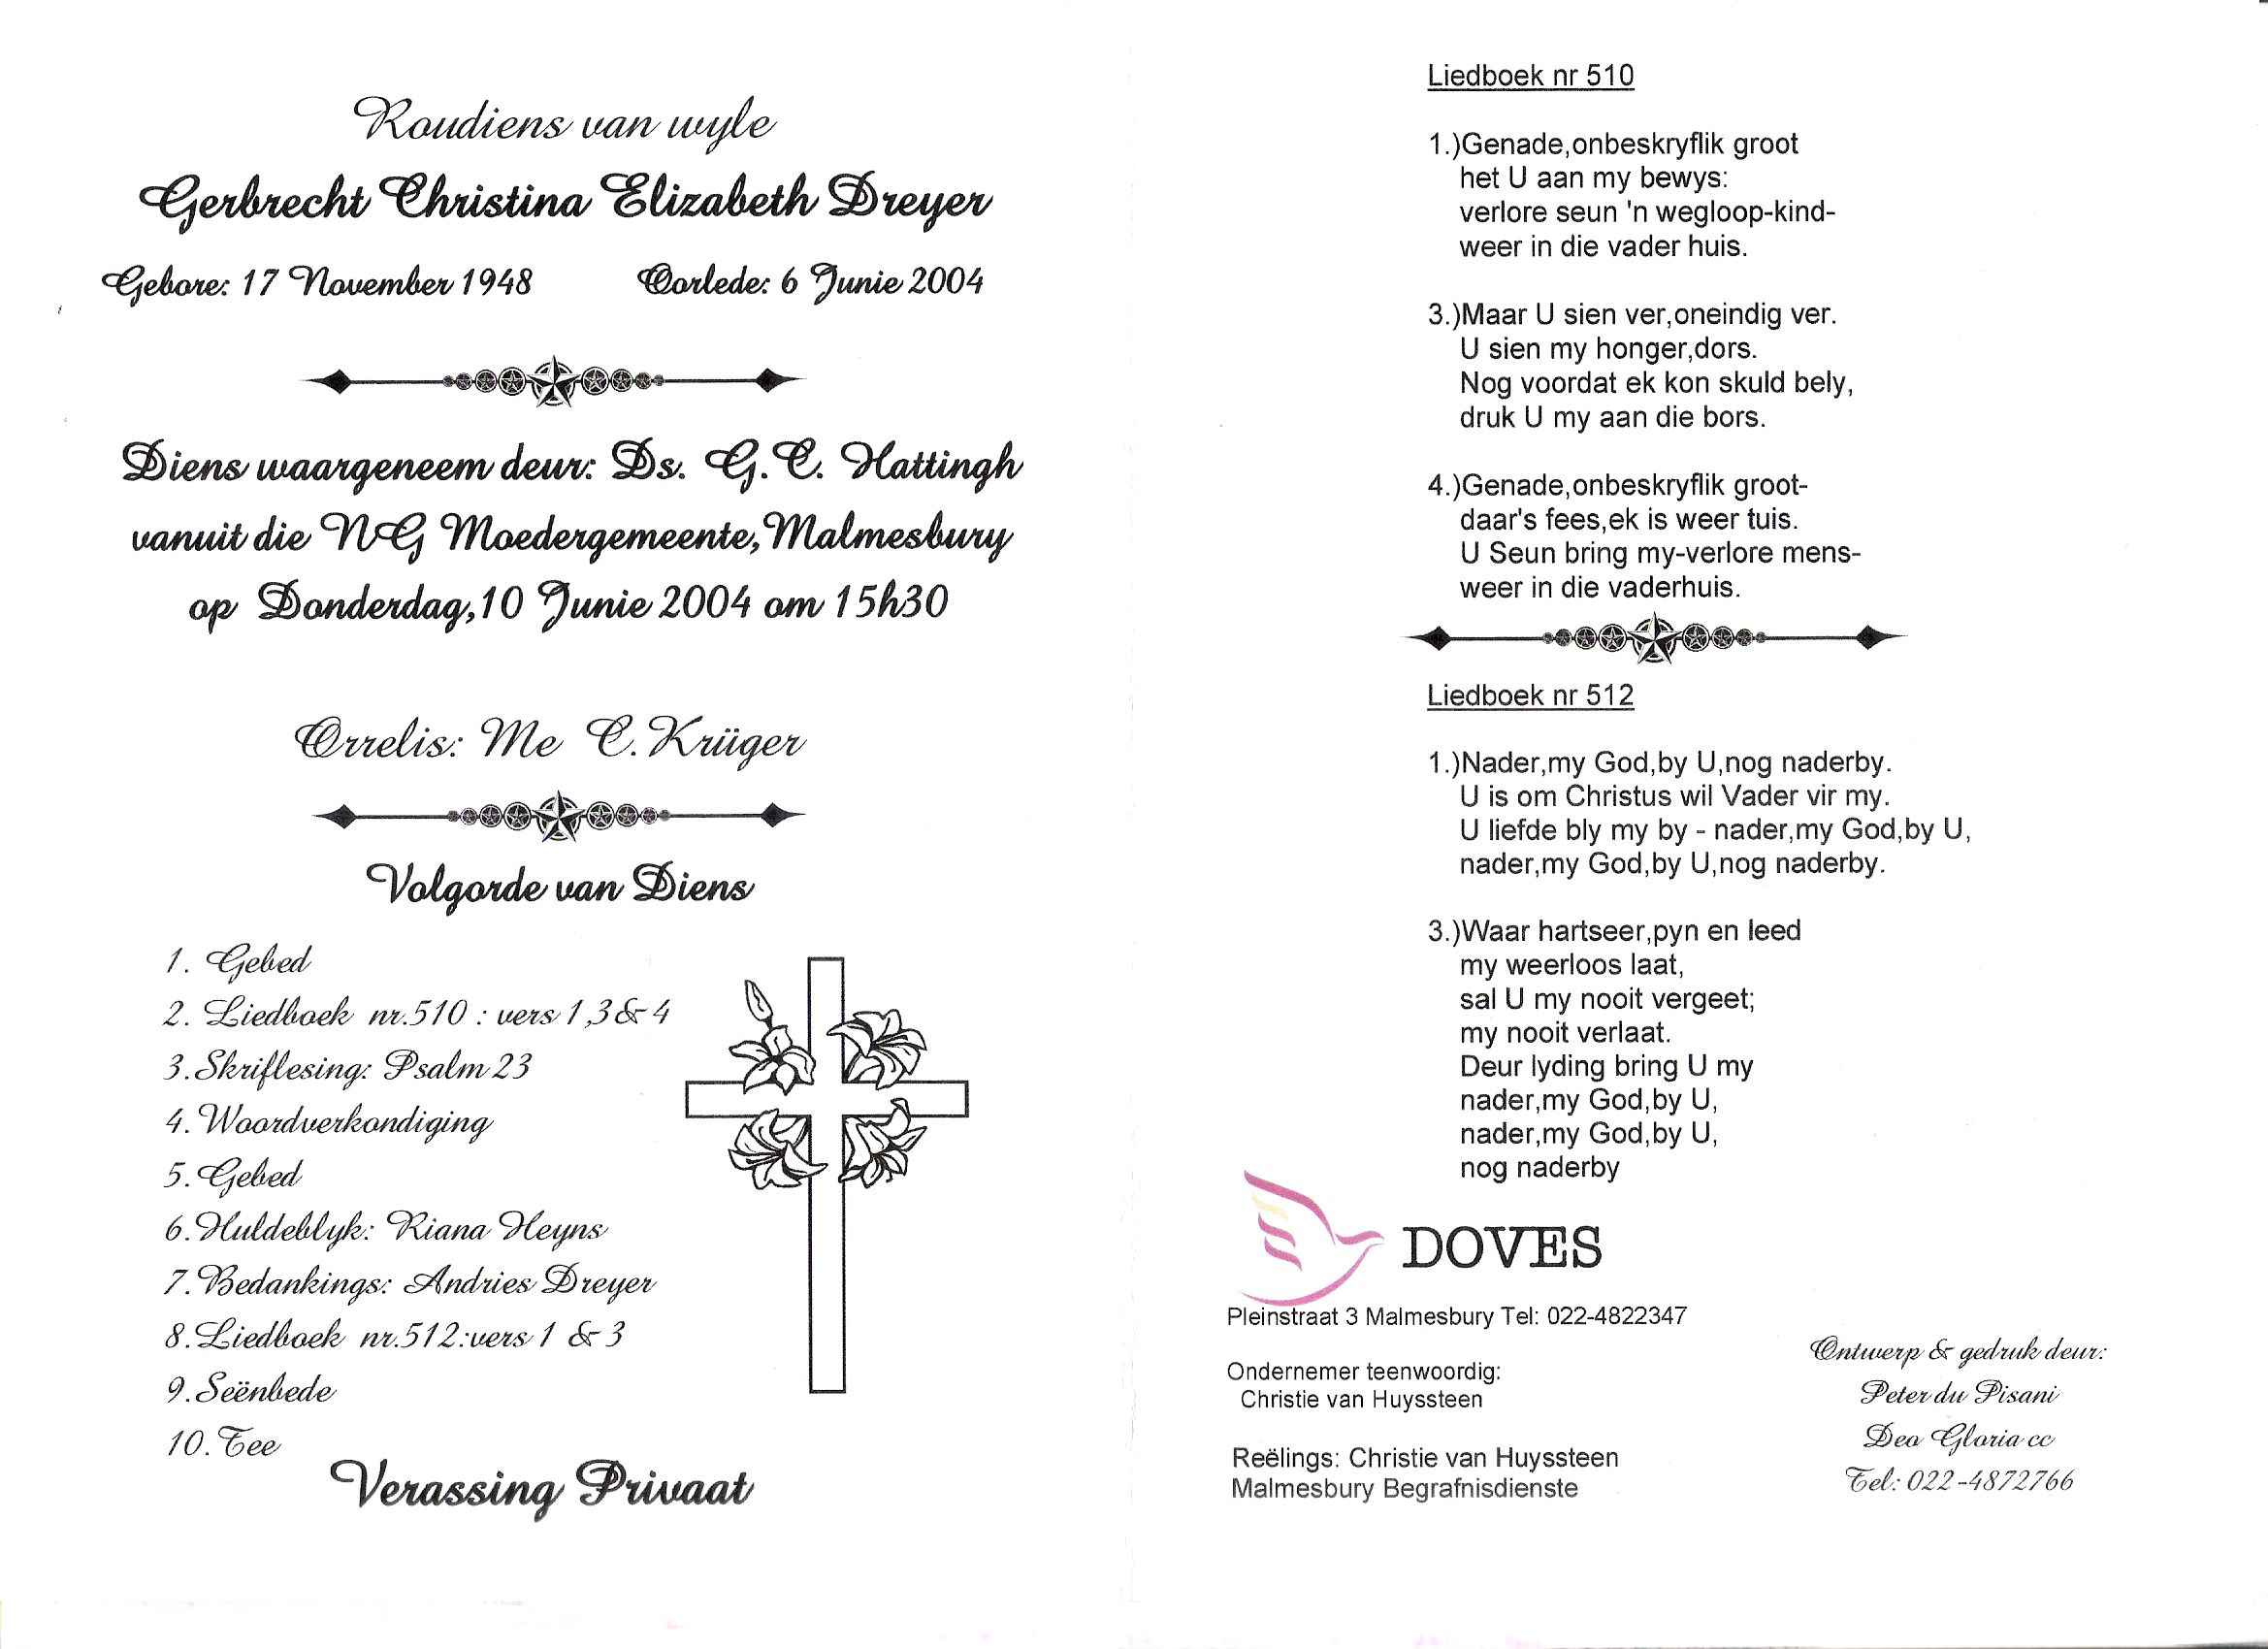 Roudiens van wyle
Gerbrecht Christina Elizabeth Dreyer
Gebore: 17 November 1948 Oorlede: 6 Junie 2004
Diens waargeneem deur: Ds. G.C. Hattingh
vanuit die NG Moedergemeente,Malmesbury
op Donderdag,10 Junie 2004 om 15h30
Orrelis: Me C.Krüger
Volgorde van Diens
1. Gebed
2. Liedboek nr.510 : vers 1,3 & 4
3.Skriflesing: Psalm 23
4.Woordverkondiging
5.Gebed
6.Huldeblyk: Riana Heyns
7.Bedankings: Andries Dreyer
8.Liedboek nr.512:vers 1 & 3
9.Seënbede
10.Tee
Verassing Privaat
Liedboek nr 510
1.)Genade,onbeskryflik groot
het U aan my bewys:
verlore seun 'n wegloop-kind-
weer in die vader huis.
3.)Maar U sien ver,oneindig ver.
U sien my honger,dors.
Nog voordat ek kon skuld bely,
druk U my aan die bors.
4.)Genade,onbeskryflik groot-
daar's fees,ek is weer tuis.
U Seun bring my-verlore mens-
weer in die vaderhuis.
Liedboek nr 512
1.)Nader,my God,by U,nog naderby.
U is om Christus wil Vader vir my.
U liefde bly my by - nader,my God,by U,
nader,my God,by U,nog naderby.
3.)Waar hartseer,pyn en leed
my weerloos laat,
sal U my nooit vergeet;
my nooit verlaat.
Deur lyding bring U my
nader,my God,by U,
nader,my God,by U,
nog naderby
DOVES
Pleinstraat 3 Malmesbury Tel: 022-4822347
Ondernemer teenwoordig:
Christie van Huyssteen
Reëlings: Christie van Huyssteen
Malmesbury Begrafnisdienste
Ontwerp & gedruk deur:
Peter du Pisani
Deo Gloria cc
Tel: 022-4872766